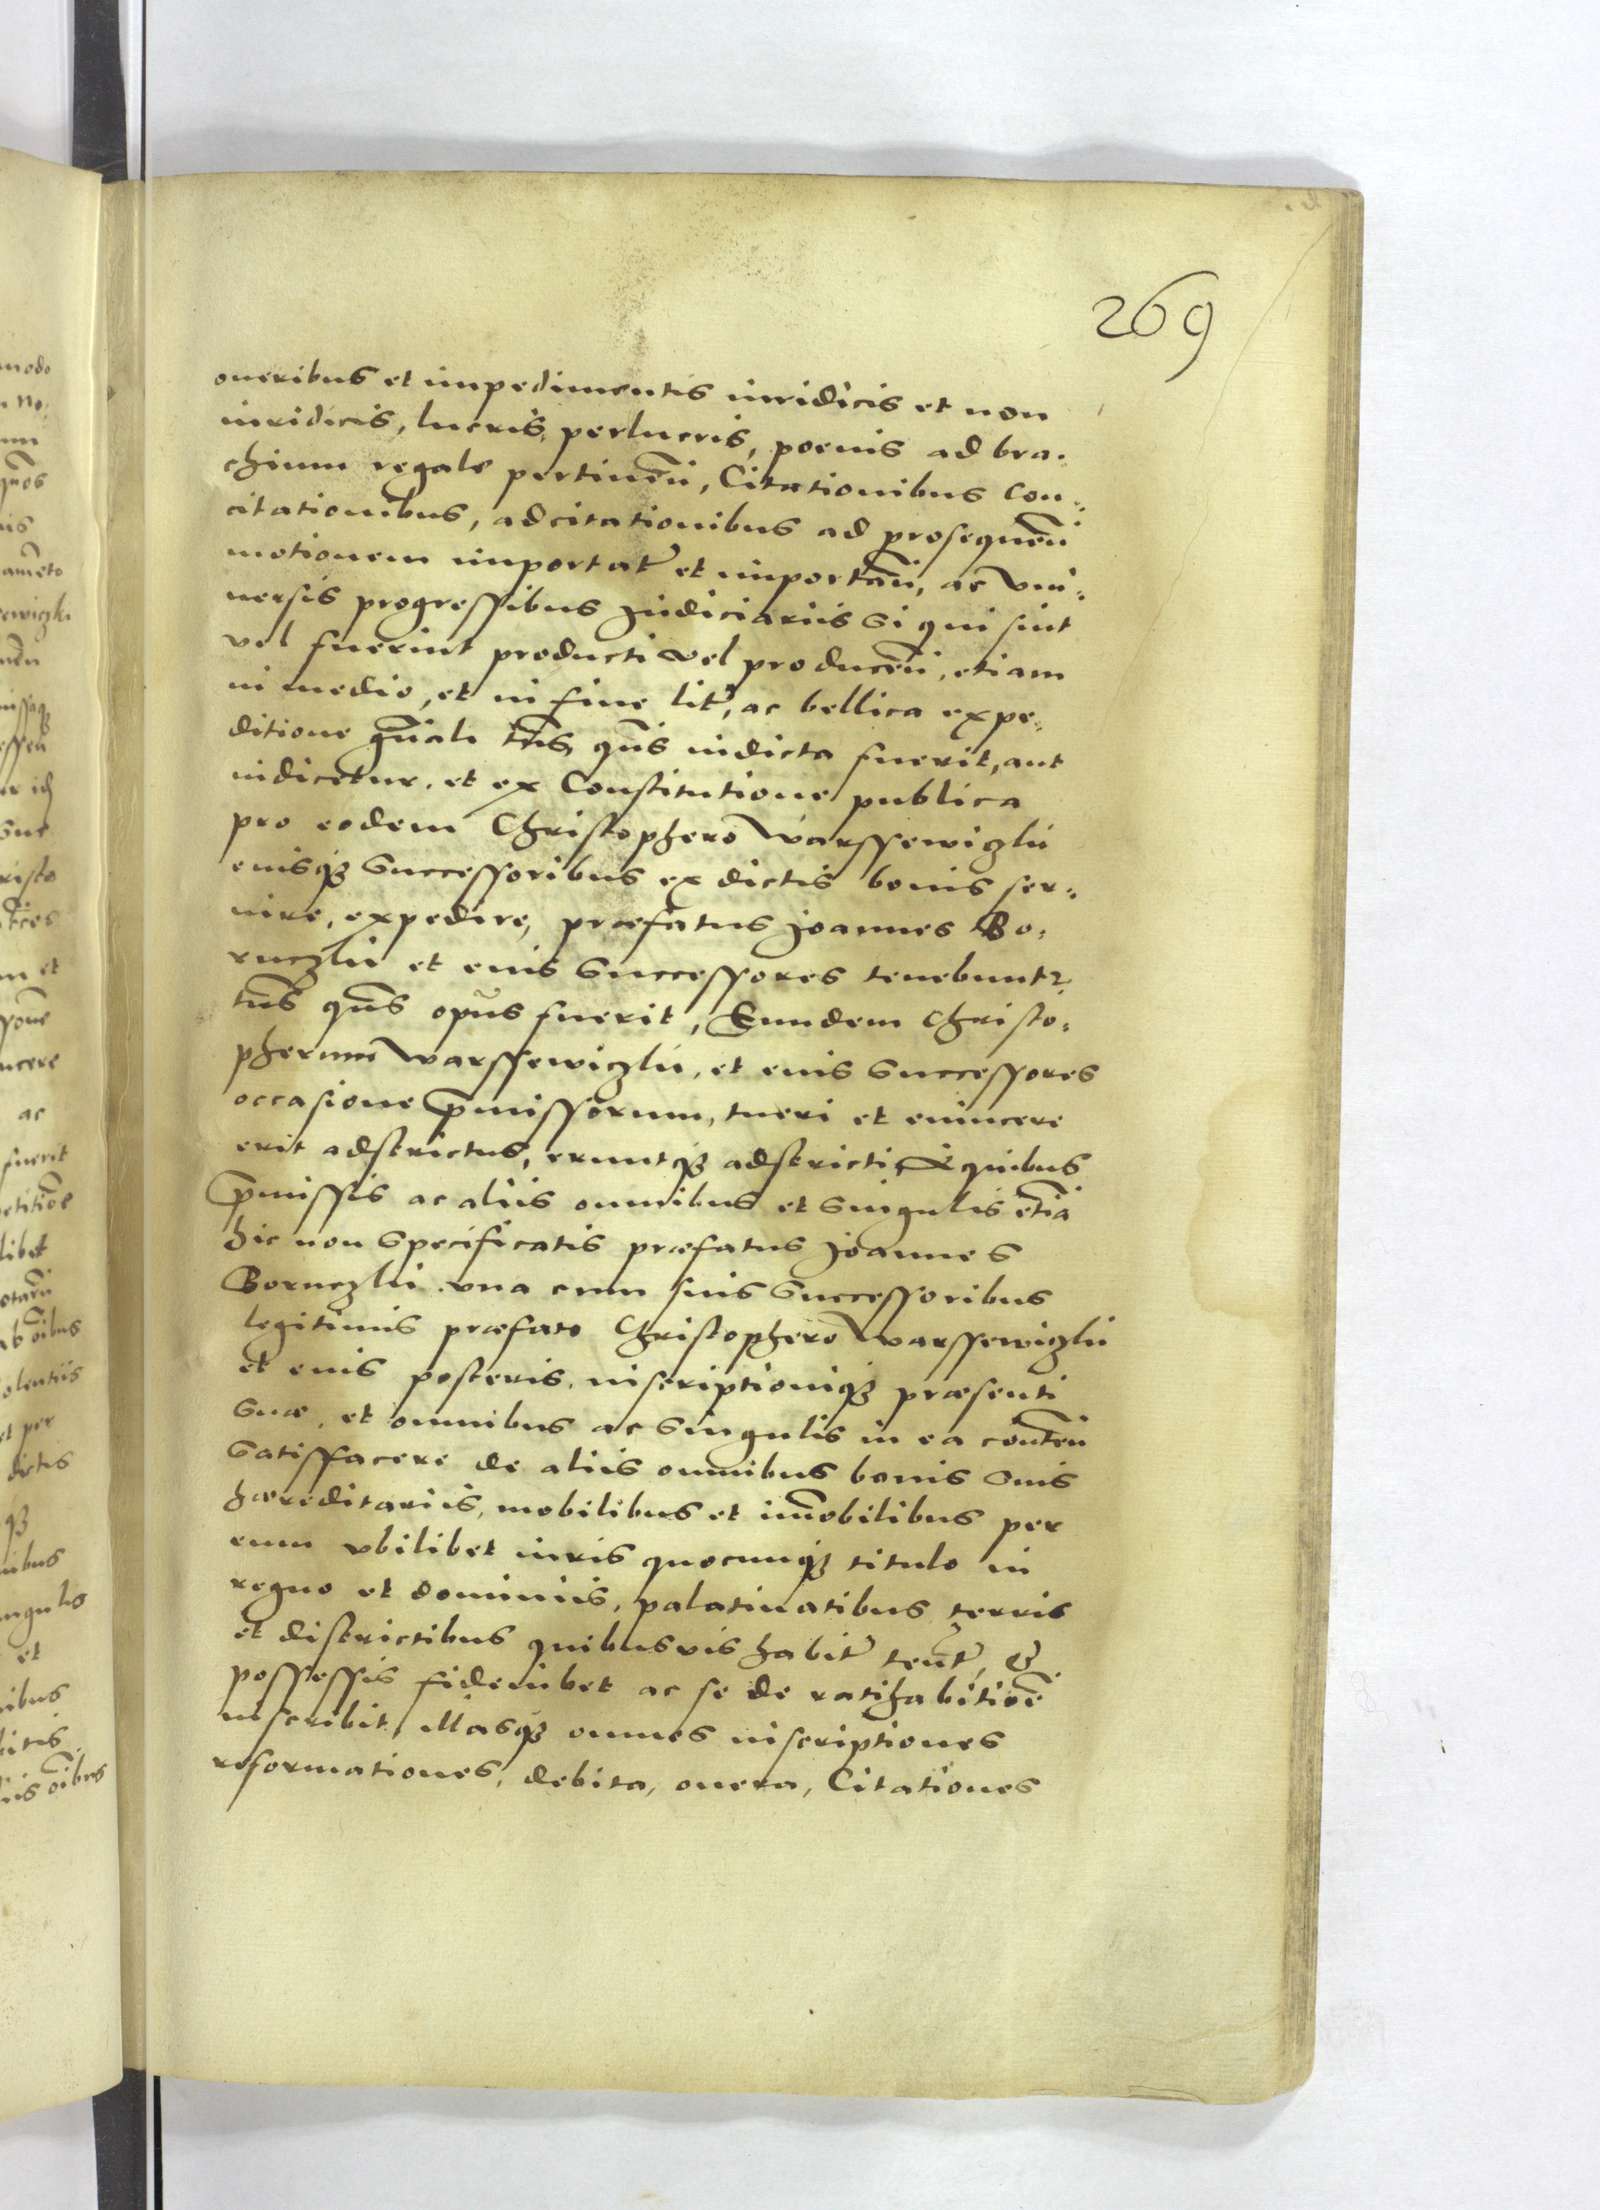 269
oneribus et impedimentis iuridicis et non
iuridicis, lucris, perlucris, poenis ad bra.
chium regale pertineñ, Citationibus con:
citationibus, adcitationibus ad prosequeñ
motionem importat et importañ, ac vni:
uersis progressibus Judiciariis si qui sint
vel fuerint producti vel produceñ, etiam
in medio, et in fine lit, ac bellica expe:
ditione gñali tñs, qñs indicta fuerit, aut
indicetur. et ex Constitutione publica
pro eodem Christophero Warssewiczki
eiusq3 Successoribus ex dictis bonis ser:
uire, expedire, praefatus Joannes Bo:
ruczki et eius Successores tenebuntr,
tñs qñs opus fuerit, Eundem Christo:
pherum Warssewiczki, et eius Successores
occasione pmissorum, tueri et euincere
erit adstrictus, eruntq3 adstricti, De quibus
pmissis ac aliis omnibus et singulis etiā
hic non specificatis praefatus Joannes
Boruczki vna cum suis Successoribus
legitimis praefato Christophero Warssewiczki
et eius posteris, inscriptioniq3 praesenti
suae, et omnibus ac singulis in ea conteñ
Satisffacere de aliis omnibus bonis suis
haereditariis, mobilibus et im̄obilibus per
eum vbilibet iuris quocunq3 titulo in
regno et dominiis, palatinatibus terris
et districtibus quibusvis habit tent, &
possessis fideiubet ac se de ratihabitioē
inscribit, illasq3 omnes inscriptiones
reformationes, debita, onera, Citationes